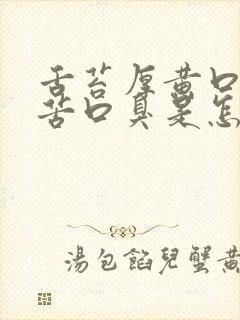 舌苔厚黄口
苦口臭是怎
湯包餡兒蟹黃